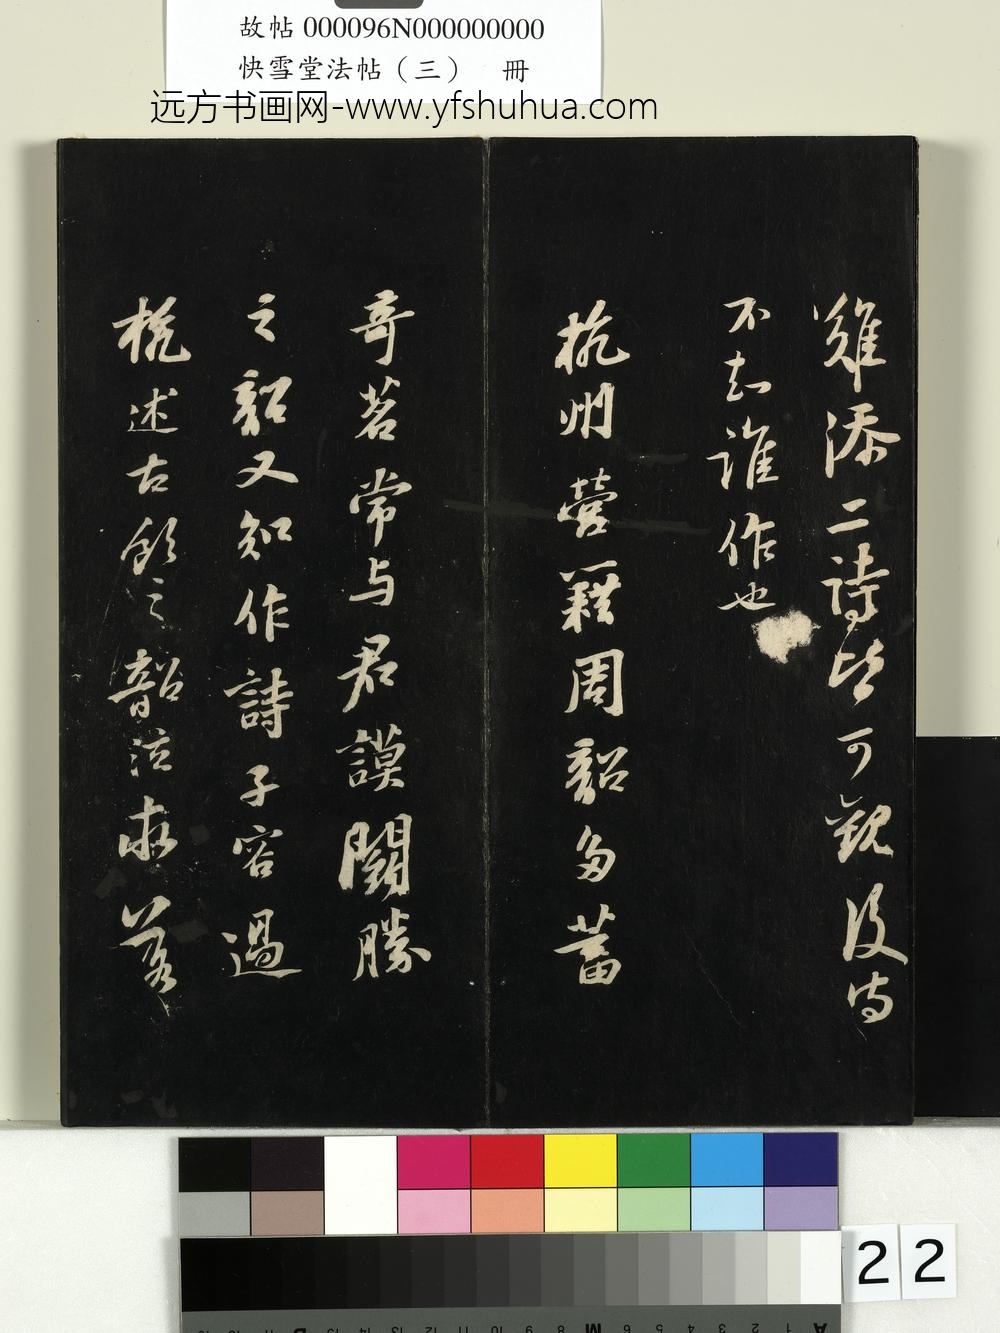 故帖 000096N000000000
快雪堂法帖（三） 冊
远方书画网-www.yfshuhua.com
難添二詩皆可觀後詩
不知誰作也
杭州營籍周韶多蓄
奇茗常与君謨鬪勝
之韶又知作詩子容過
杭述古飲之韶泣求落
22